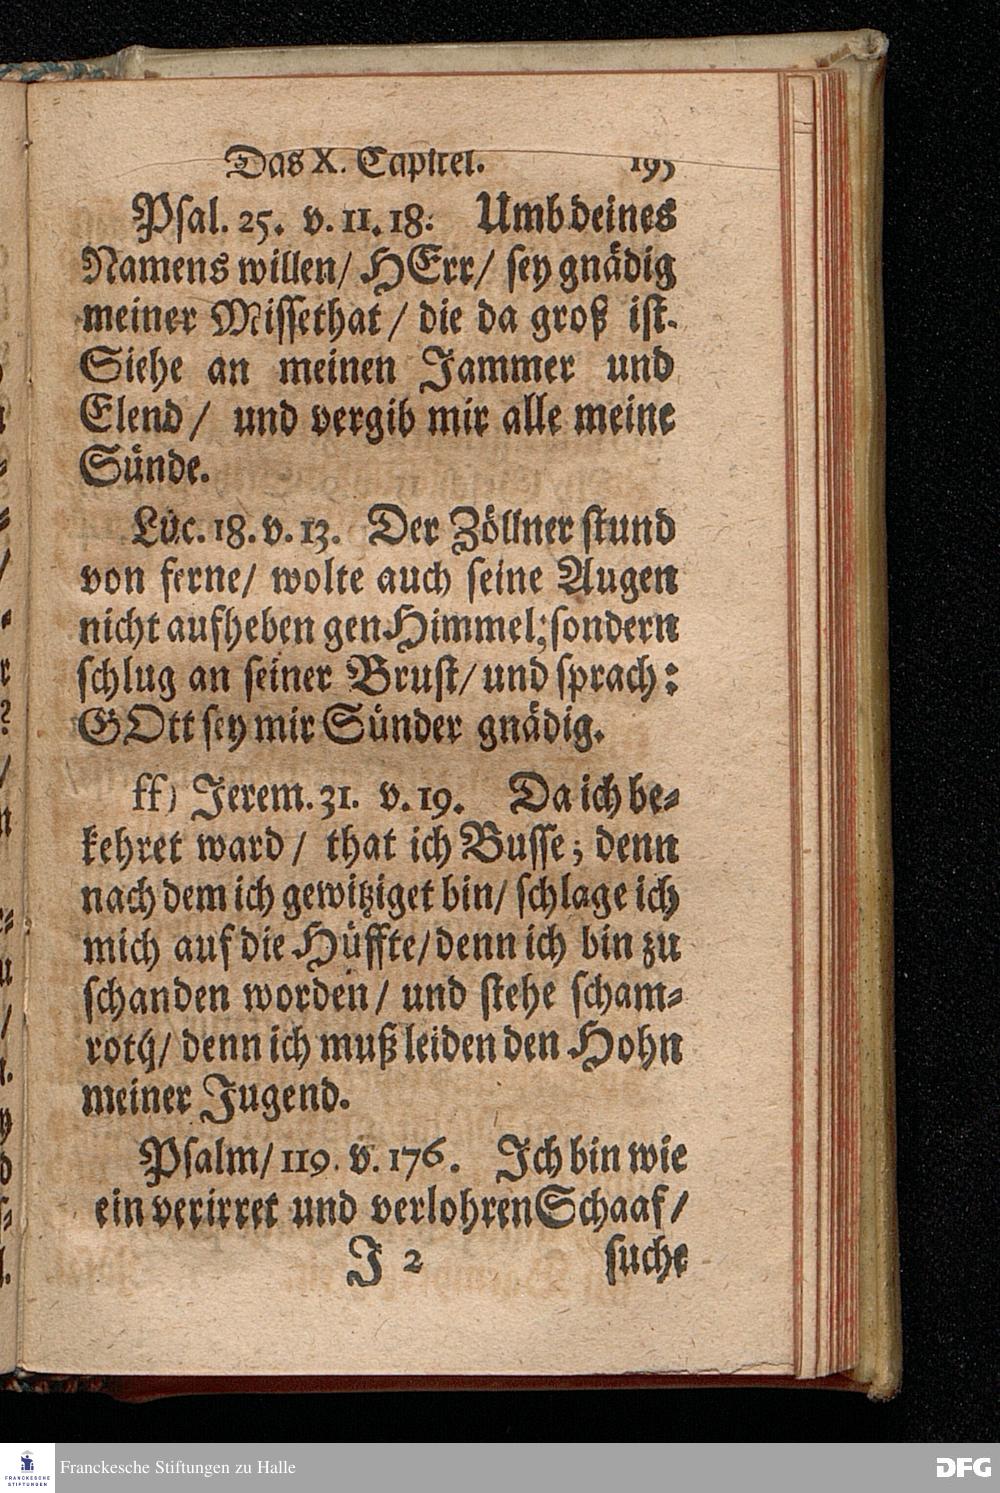 Das X. Capitel. 195
Psal. 25. v. 11. 18. Umb deines
Namens willen/ HErr/ sey gnädig
meiner Missethat/ die da groß ist.
Siehe an meinen Jammer und
Elend/ und vergib mir alle meine
Sünde.
Luc. 18. v. 13. Der Zöllner stund
von ferne/ wolte auch seine Augen
nicht aufheben gen Himmel; sondern
schlug an seiner Brust/ und sprach:
GOtt sey mir Sünder gnädig.
ff) Jerem. 31. v. 19. Da ich be-
kehret ward/ that ich Busse; denn
nach dem ich gewitziget bin/ schlage ich
mich auf die Hüffte/ denn ich bin zu
schanden worden/ und stehe scham-
roth/ denn ich muß leiden den Hohn
meiner Jugend.
Psalm/ 119. v. 176. Ich bin wie
ein verirret und verlohren Schaaf/
J 2 suche
FRANCKESCHE
STIFTUNGEN
Franckesche Stiftungen zu Halle
DFG